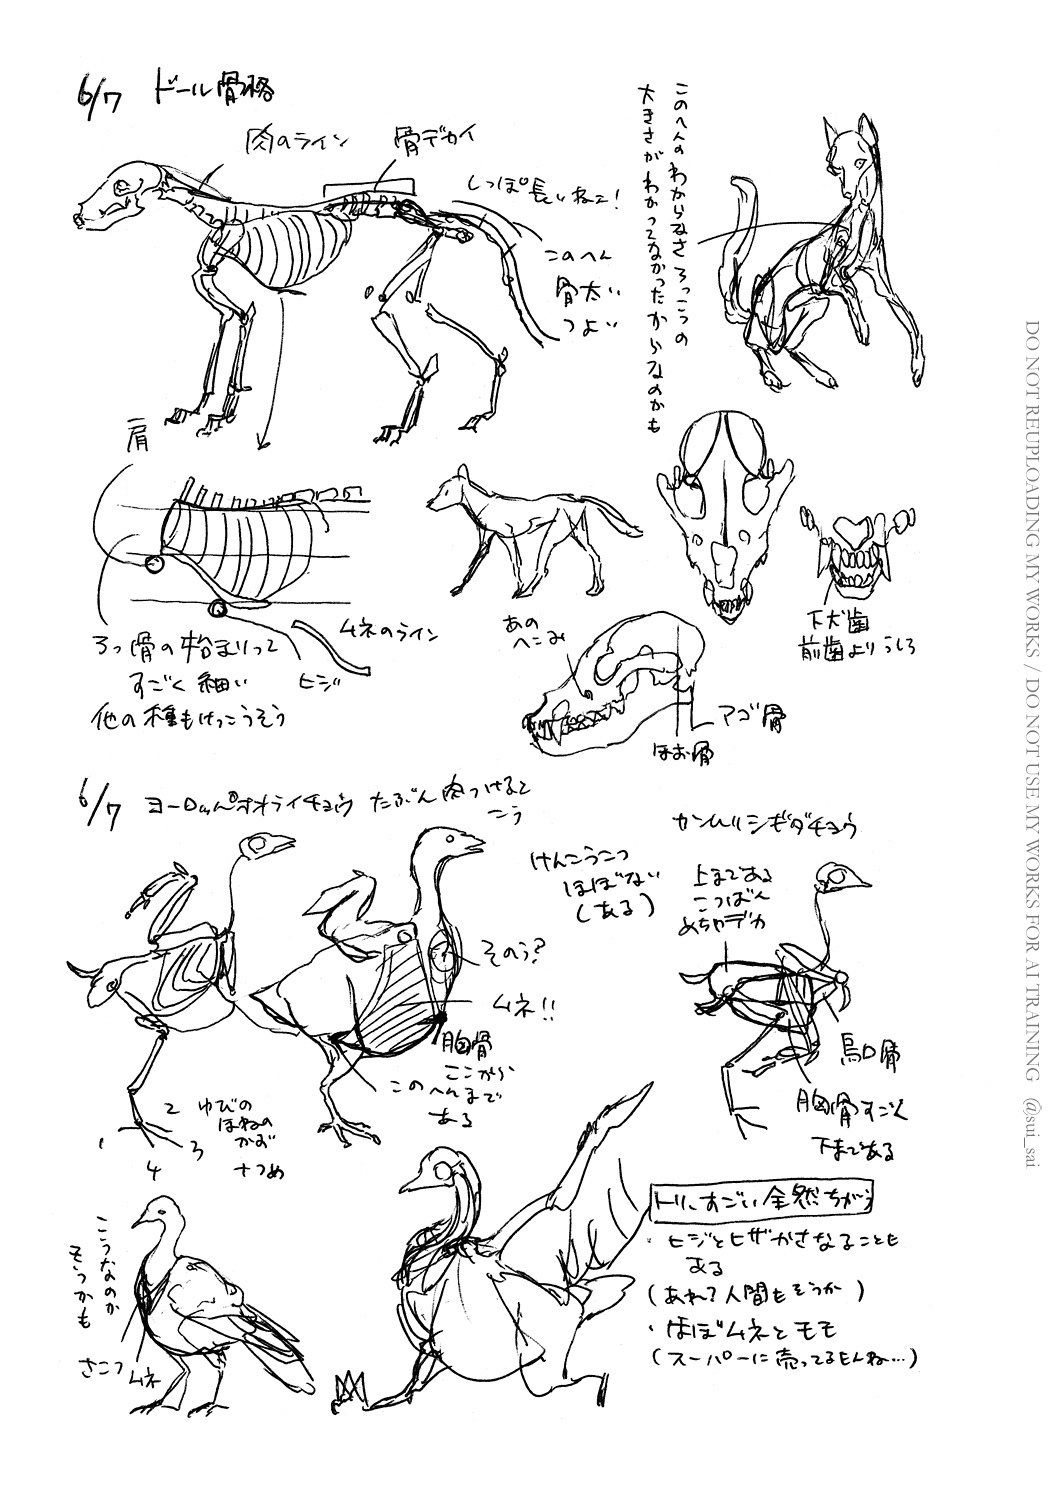 6/7 ドール骨格
肉のライン
骨デカイ
しっぽ長いねこ!
このへん
骨太い
つよい
このへんのわからなさ ろっこつの
大きさがわかってなかったからなのかも
肩
ろっ骨の始まりって
すごく細い
他の種もけっこうそう
ムネのライン
ヒジ
あの
へこみ
アゴ骨
ほお骨
下犬歯
前歯よりうしろ
6/7 ヨーロッパオオライチョウ たぶん肉つけると
こう
けんこうこつ
ほぼない
(ある)
そのう?
ムネ!!
胸骨
ここから
このへんまで
ある
1
2
3
4
ゆびの
ほねの
かず
カンムリシギダチョウ
上まである
こつばん
めちゃデカ
烏口骨
胸骨すごく
下まである
こうなのか
そうかも
さこつ
ムネ
トリ、すごい全然ちがう
・ヒジとヒザかさなることも
ある
(あれ?人間もそうか)
・ほぼムネとモモ
(スーパーに売ってるもんね…)
DO NOT REUPLOADING MY WORKS / DO NOT USE MY WORKS FOR AI TRAINING @sui_sai